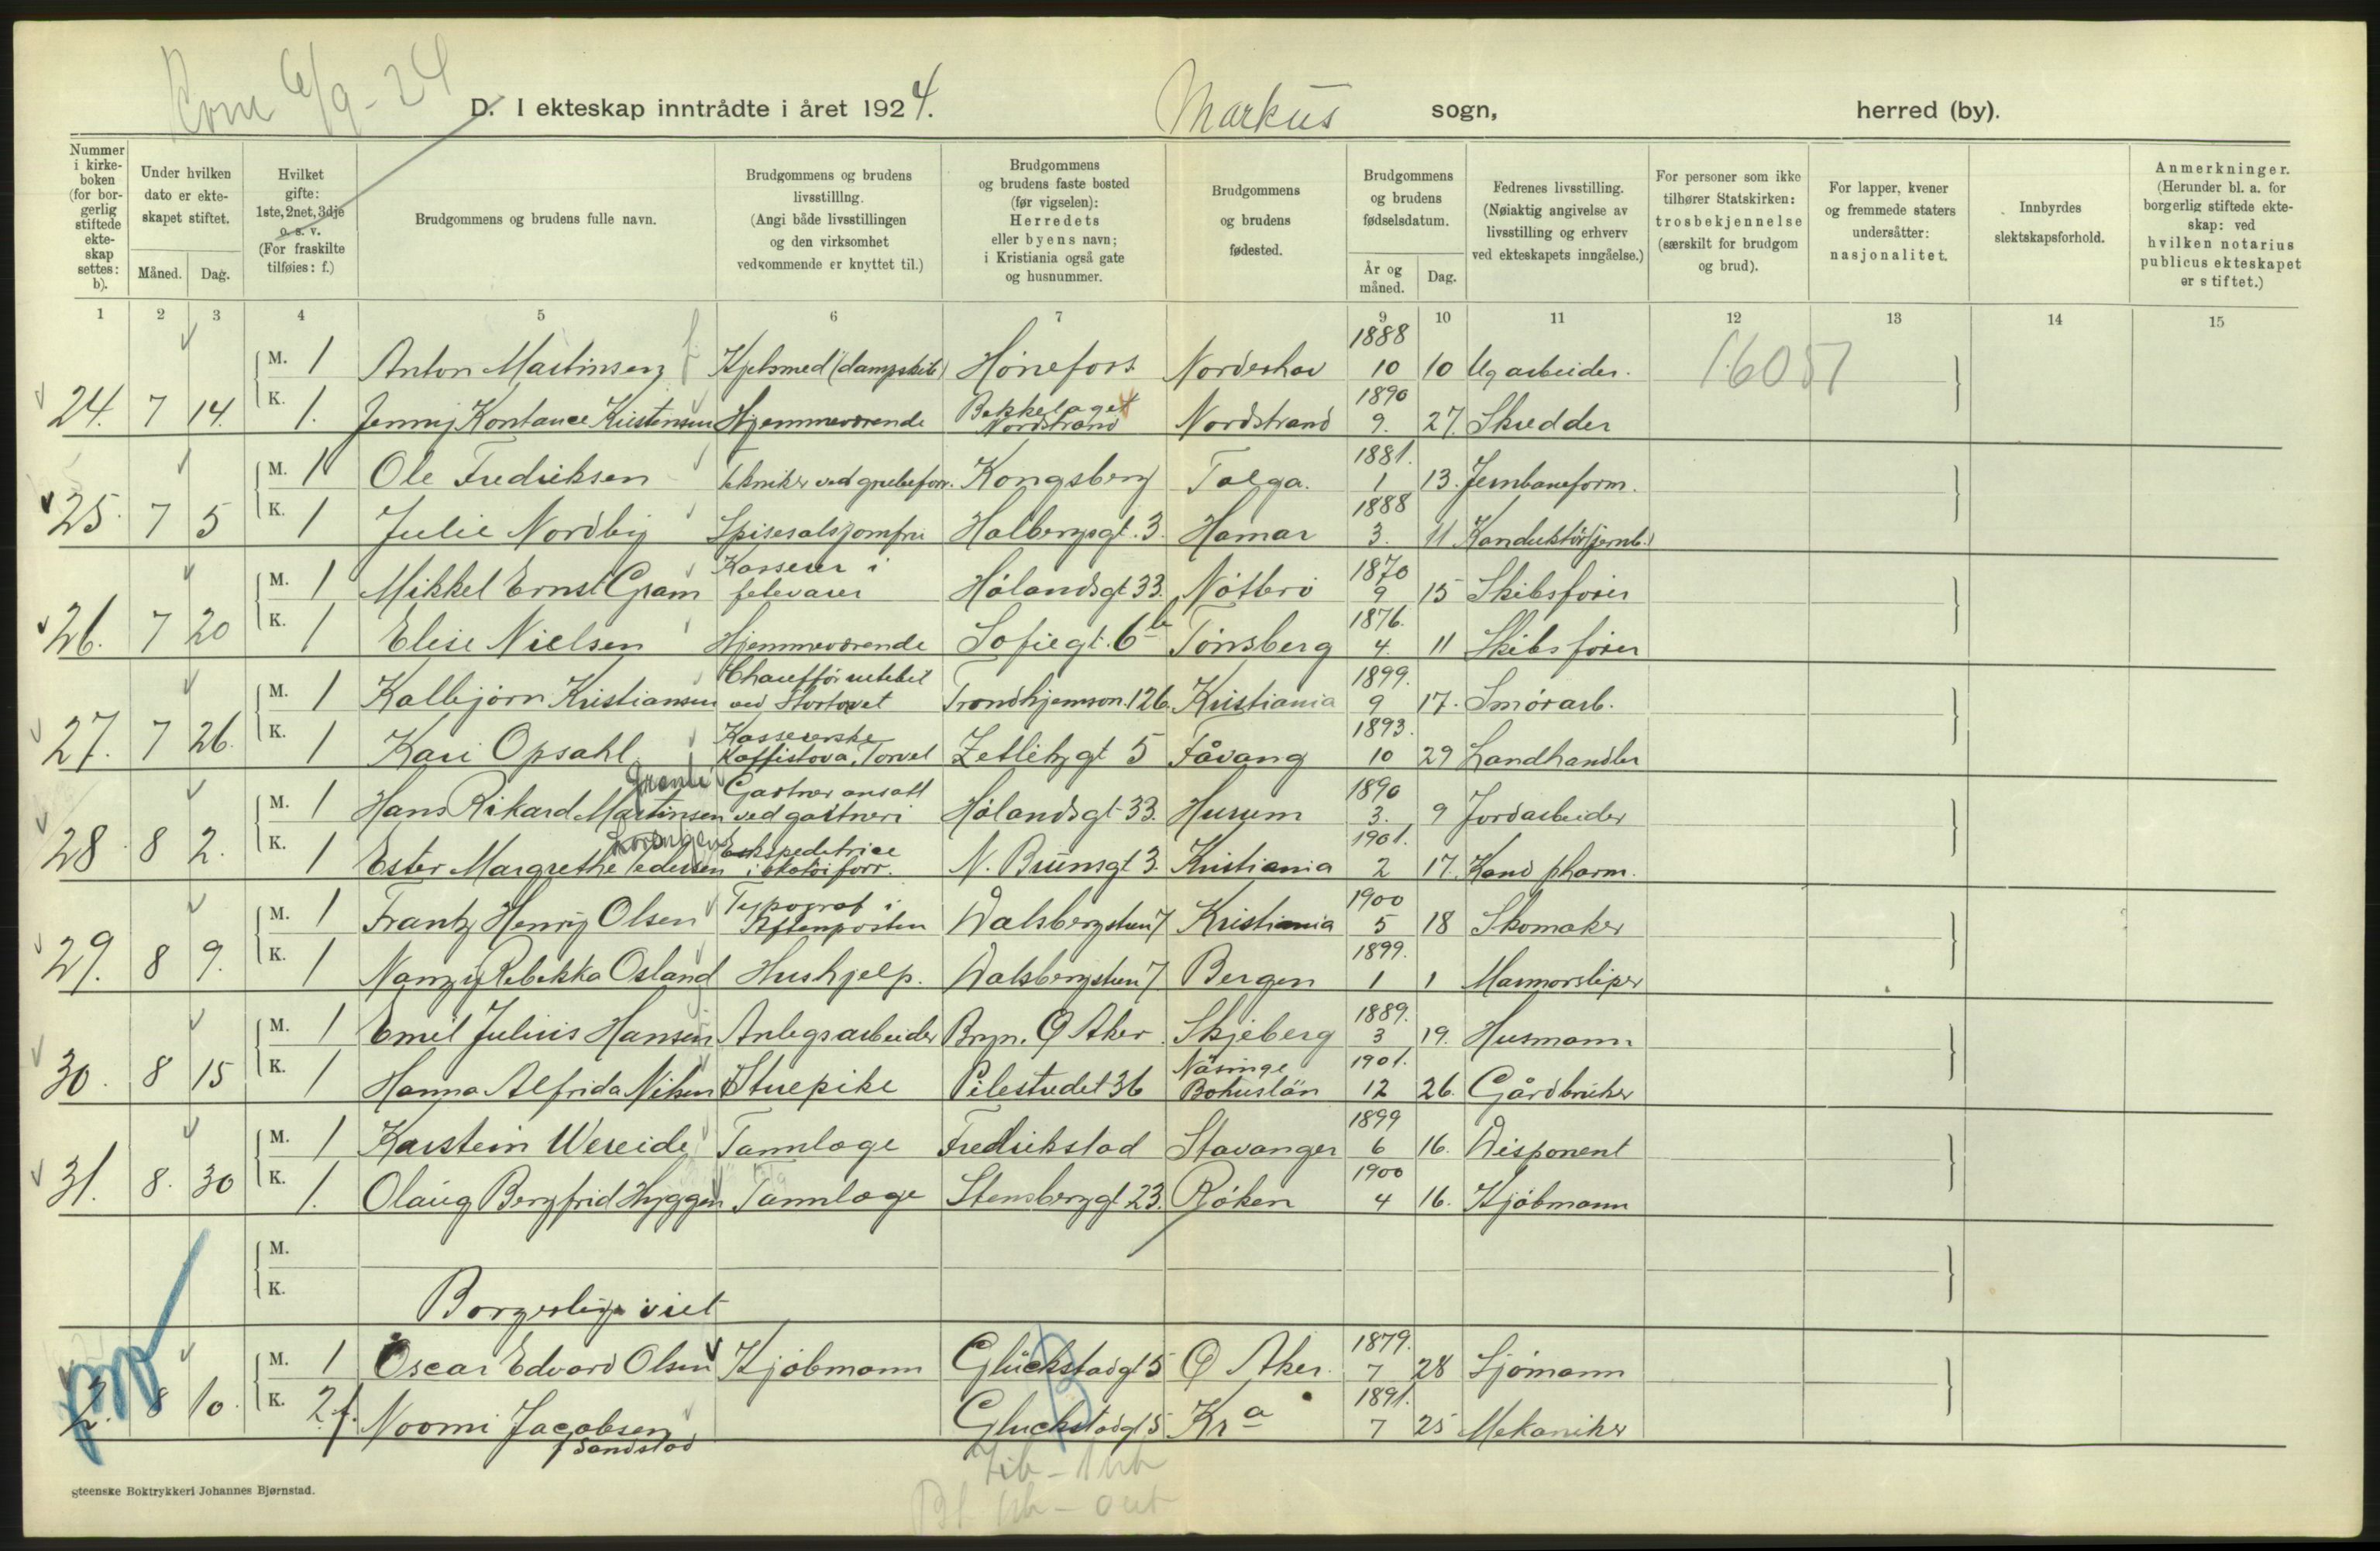 Kom 6/9-24
D. I ekteskap inntrådte i året 1924. Markus sogn, herred (by).
Nummer i kirkeboken (for borgerlig stiftede ekteskap settes: b).
Under hvilken dato er ekteskapet stiftet.
Måned. Dag.
Hvilket gifte: 1ste, 2net, 3dje o. s. v. (For fraskilte tilføies: f.)
Brudgommens og brudens fulle navn.
Brudgommens og brudens livsstilllng. (Angi både livsstillingen og den virksomhet vedkommende er knyttet til.)
Brudgommens og brudens faste bosted (før vigselen): Herredets eller byens navn; i Kristiania også gate og husnummer.
Brudgommens og brudens fødested.
Brudgommens og brudens fødselsdatum.
År og måned. Dag.
Fedrenes livsstilling. (Nøiaktig angivelse av livsstilling og erhverv ved ekteskapets inngåelse.)
For personer som ikke tilhører Statskirken: trosbekjennelse (særskilt for brudgom og brud).
For lapper, kvener og fremmede staters undersåtter: nasjonalitet.
Innbyrdes slektskapsforhold.
Anmerkninger. (Herunder bl. a. for borgerlig stiftede ekteskap: ved hvilken notarius publicus ekteskapet er stiftet.)
1 2 3 4 5 6 7 8 9 10 11 12 13 14 15
M. 1 Anton Martinsen Kjelsmed (dampskib) Hönefoss Norderhov 1888 10 10 Vegarbeider. 16051
24. 7 14. K. 1. Jenny Konstance Kristensen Hjemmeværende Bekkelaget Nordstrand Nordstrand 1890 9. 27. Skredder
M. 1 Ole Fredriksen Tekniker ved grubeforr. Kongsberg Tolga. 1881. 1 13. Jernbaneform.
25. 7 5 K. 1 Julie Nordby Spisesalsjomfru Holbergsgt. 3. Hamar 1888 3. 11 Konduktör (jernb.)
M. 1 Mikkel Ernst Gram Kasserer i fetevarer Hölandsgt 33. Nötterö 1870 9 15 Skibsförer
26. 7 20 K. 1 Elise Nielsen Hjemmeværende Sofiegt. 6b Tönsberg 1876. 4. 11 Skibsförer
M. 1 Kolbjörn Kristiansen Chaufför rutebil ved Stortorvet Trondhjemsvn. 126. Kristiania 1899. 9 17. Smörarb.
27. 7 26. K. 1 Kari Opsahl Kassererske Kaffistova, Torvet Zetlitzgt 5 Fåvang 1893. 10 29 Landhandler
M. 1 Hans Rikard Martinsen Gartner ansatt ved gartneri Hölandsgt 33. Hurum 1890 3. 9 Jordarbeider
28 8 2. K. 1 Ester Margrethe Pedersen Ekspeditrice i skotöiforr. N. Bruunsgt 3. Kristiania 1901. 2 17. Kand pharm.
M. 1 Frantz Henry Olsen Typograf i Aftenposten Walsbergstien 7 Kristiania 1900 5 18 Skomaker
29. 8 9. K. 1 Nanzy Rebekka Osland Hushjelp. Walsbergstien 7. Bergen 1899. 1 1 Marmorsliper
M. 1 Emil Julius Hansen Anlegsarbeider Bryn. Ö Aker. Skjeberg 1889. 3 19. Husmann
30. 8 15 K. 1 Hanna Alfrida Nilsen Stuepike Pilestredet 36 Näsinge Bohuslän 1901. 12 26. Gårdbruker
M. 1 Karstein Wereide Tannlæge Fredrikstad Stavanger 1899 6 16. Disponent
31. 8. 30 K. 1. Olaug Bergfrid Hyggen Tannlæge Stensberggt 23. Röken 1900 4 16. Kjöbmann
M.
K.
Borgerlig viet
M. 1 Oscar Edvard Olsen Kjöbmann Glückstadgt 5 Ö Aker. 1879. 7 28 Sjömann
2. 8 10. K. 2 f. Noomi Jacobsen f Sandstad Gluckstadgt 5 Kra 1891. 7 25 Mekaniker
steenske Boktrykkeri Johannes Bjørnstad.